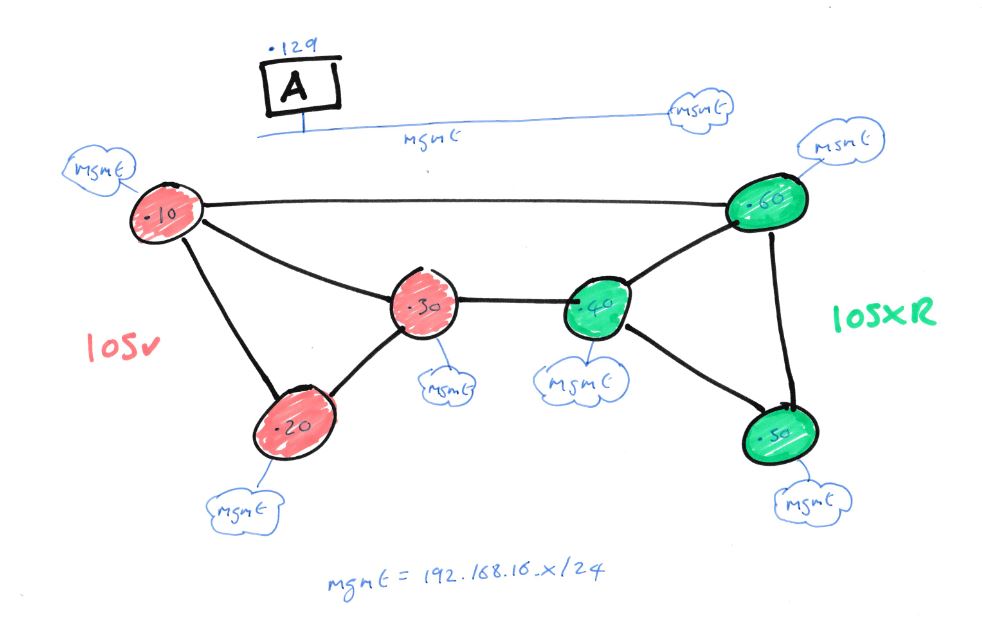 .129
A
mgmt
mgmt
mgmt
mgmt
.10
.60
.30
.40
IOSv
IOSXR
mgmt
mgmt
.20
.50
mgmt
mgmt
mgmt = 192.168.16.x/24